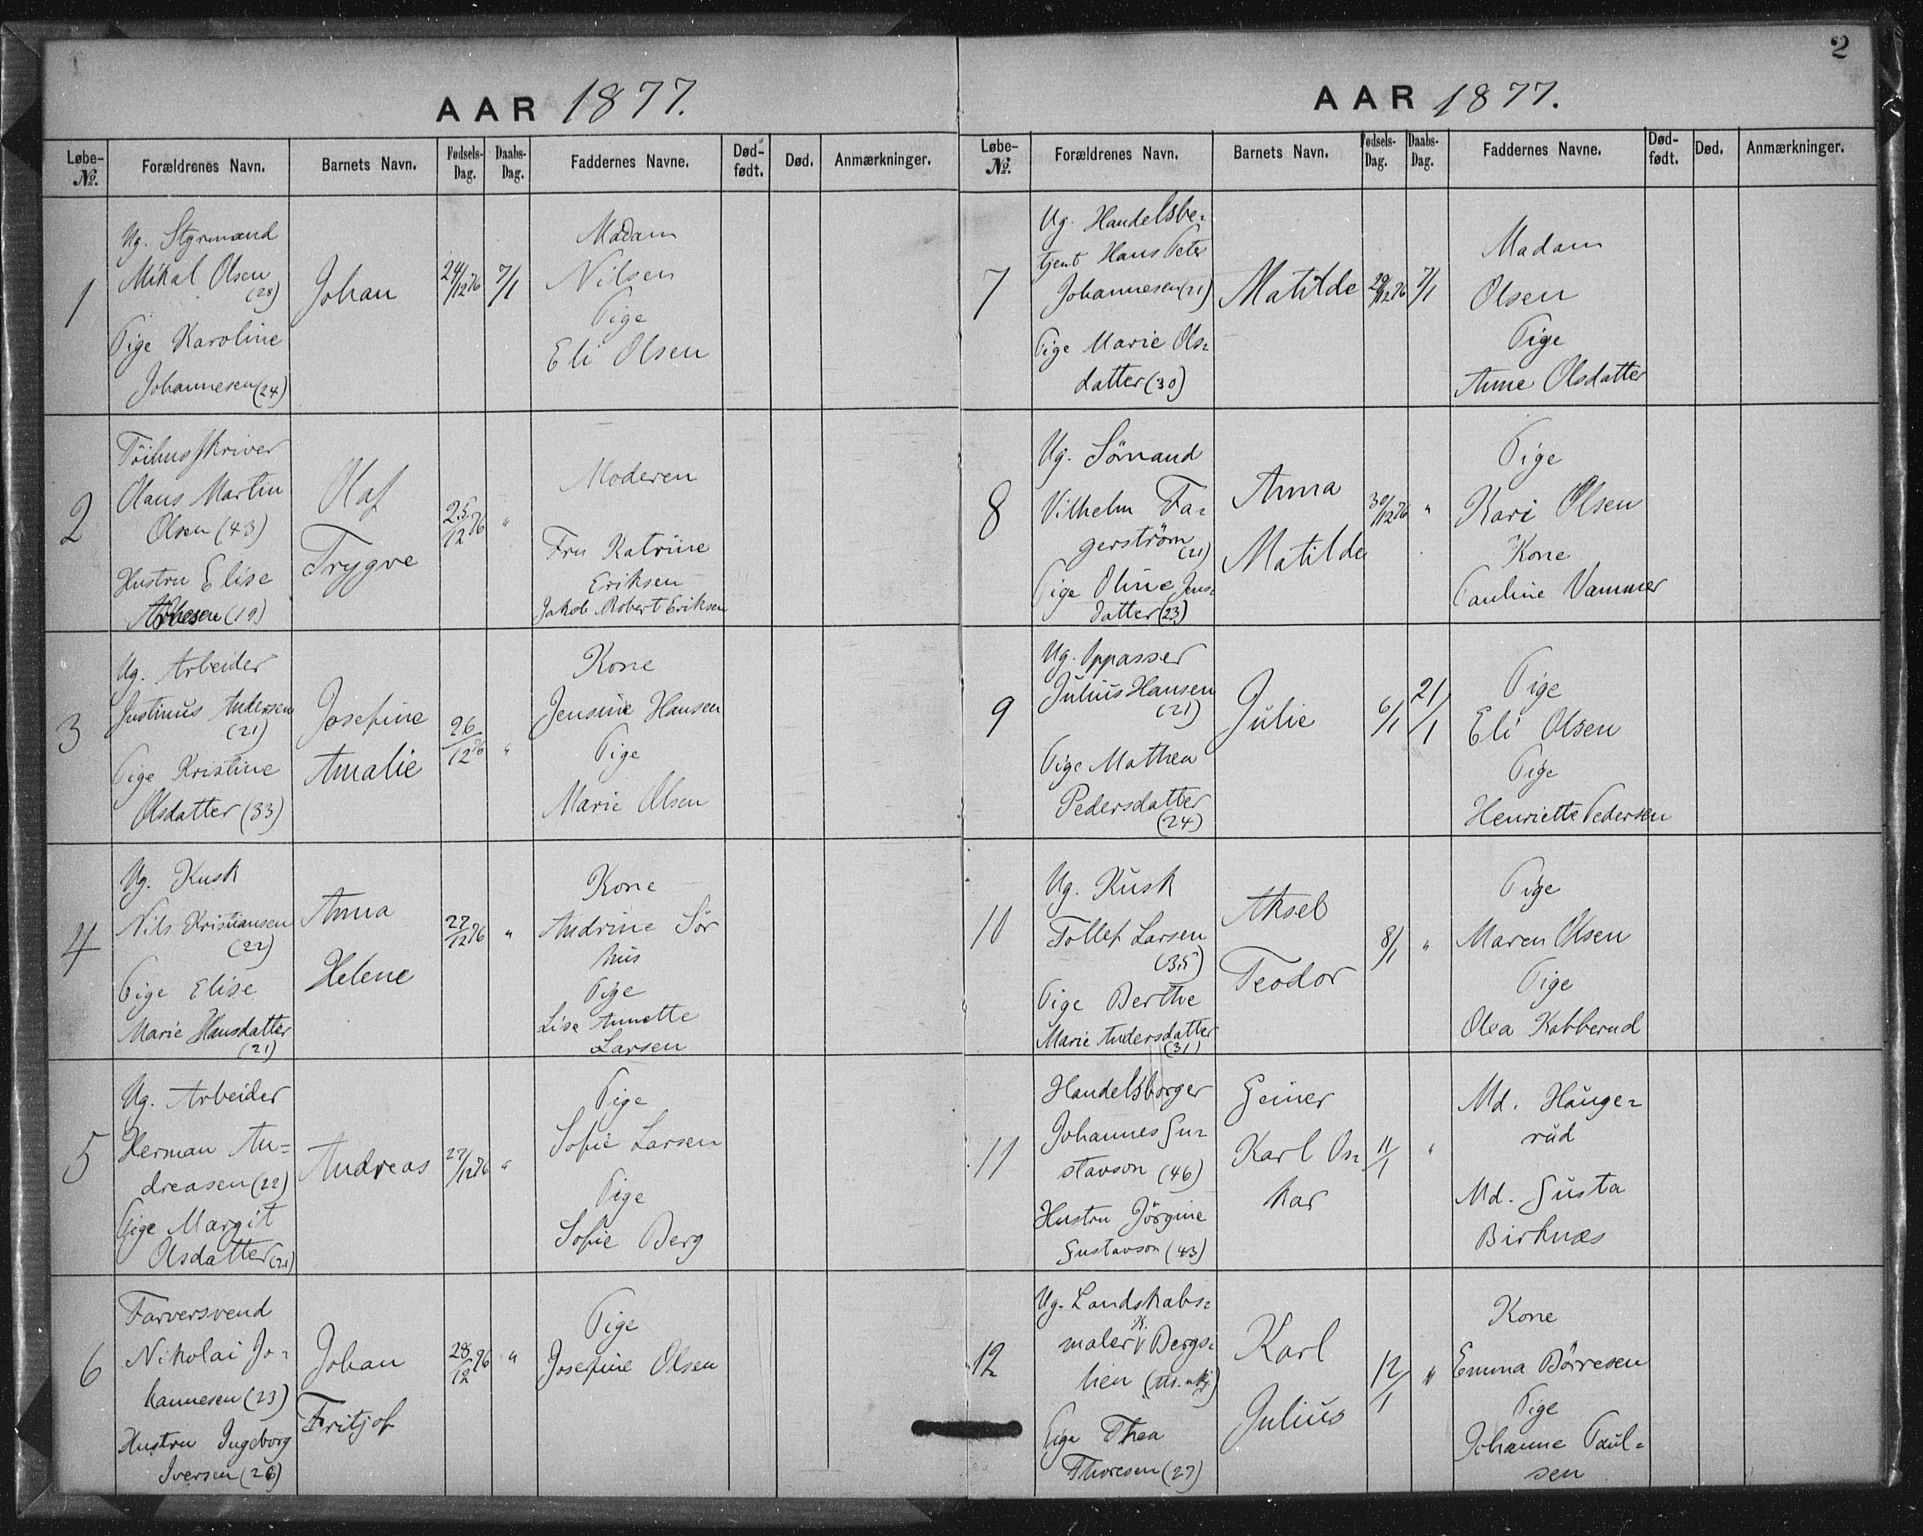 AAR 1877.
Løbe-
No.
Forældrenes Navn.
Barnets Navn.
Fødsels-
Dag.
Daabs-
Dag.
Faddernes Navne.
Død-
født.
Død.
Anmærkninger.
1
Ug. Styrmand
Mikal Olsen
(28)
Pige Karoline
Johannesen (24)
Johan
24/12 76
7/1
Madam
Nilsen
Pige
Eli Olsen
2
Töihusskriver
Olaus Martin
Olsen (43)
Hustru Elise
(19)
Olaf
Trygve
25/12 76
"
Moderen
Fru Katrine
Eriksen
Jakob Robert Eriksen
3
Ug. Arbeider
Justinus Andersen
(21)
Pige Kristine
Olsdatter (33)
Josefine
Amalie
26/12 76
"
Kone
Jensine Hansen
Pige
Marie Olsen
4
Ug. Kusk
Nils Kristiansen
(22)
Pige Elise
Marie Hansdatter
(21)
Anna
Helene
27/12 76
"
Kone
Andrine Sör
hus
Pige
Lise Annette
Larsen
5
Ug. Arbeider
Herman An=
dreasen (22)
Pige Margit
Olsdatter (21)
Andreas
27/12 76
"
Pige
Sofie Larsen
Pige
Sofie Berg
6
Farversvend
Nikolai Jo-
hannesen (23)
Hustru Ingeborg
Iversen (26)
Johan
Fritjof
28/12 76
"
Pige
Josefine Olsen
2
AAR 1877.
Løbe-
No.
Forældrenes Navn.
Barnets Navn.
Fødsels-
Dag.
Daabs-
Dag.
Faddernes Navne.
Død-
født.
Død.
Anmærkninger.
7
Ug. Handelsbe-
tjent Hans Peter
Johannesen (21)
Pige Marie Ols=
datter (30)
Matilde
29/12 76
7/1
Madam
Olsen
Pige
Anne Olsdatter
8
Ug. Sömand
Vilhelm Fa-
gerström
(21)
Pige Oline Jens-
datter (23)
Anna
Matilde
30/12 76
"
Pige
Kari Olsen
Kone
Pauline Vammer
9
Ug. Oppasser
Julius Hansen
(21)
Pige Mathea
Pedersdatter
(24)
Julie
6/1
21/1
Pige
Eli Olsen
Pige
Henriette Pedersen
10
Ug. Kusk
Tollef Larsen
(35)
Pige Berthe
Marie Andersdatter
(31)
Aksel
Teodor
8/1
"
Pige
Maren Olsen
Pige
Olea Kabberud
11
Handelsborger
Johannes Gu-
stavson (46)
Hustru Jörgine
Gustavson (43)
Geiner
Karl Os=
kar
11/1
"
Md. Hauge=
rud
Md. Gusta
Birknæs
12
Ug. Landskabs=
maler K. Bergs=
lien
Pige Thea
Thoresen (27)
Karl
Julius
12/1
"
Kone
Emma Börresen
Pige
Johanne Paul=
sen